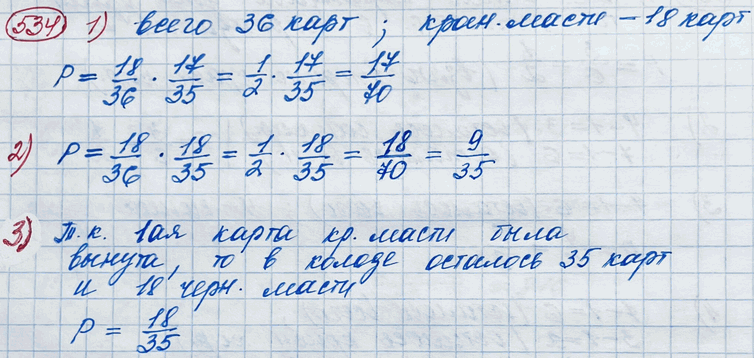 534 1) всего 36 карт ; красн. масти – 18 карт
P = 18/36 · 17/35 = 1/2 · 17/35 = 17/70
2) P = 18/36 · 18/35 = 1/2 · 18/35 = 18/70 = 9/35
3) Т.к. 1ая карта кр. масти была
вынута, то в колоде осталось 35 карт
и 18 черн. масти
P = 18/35